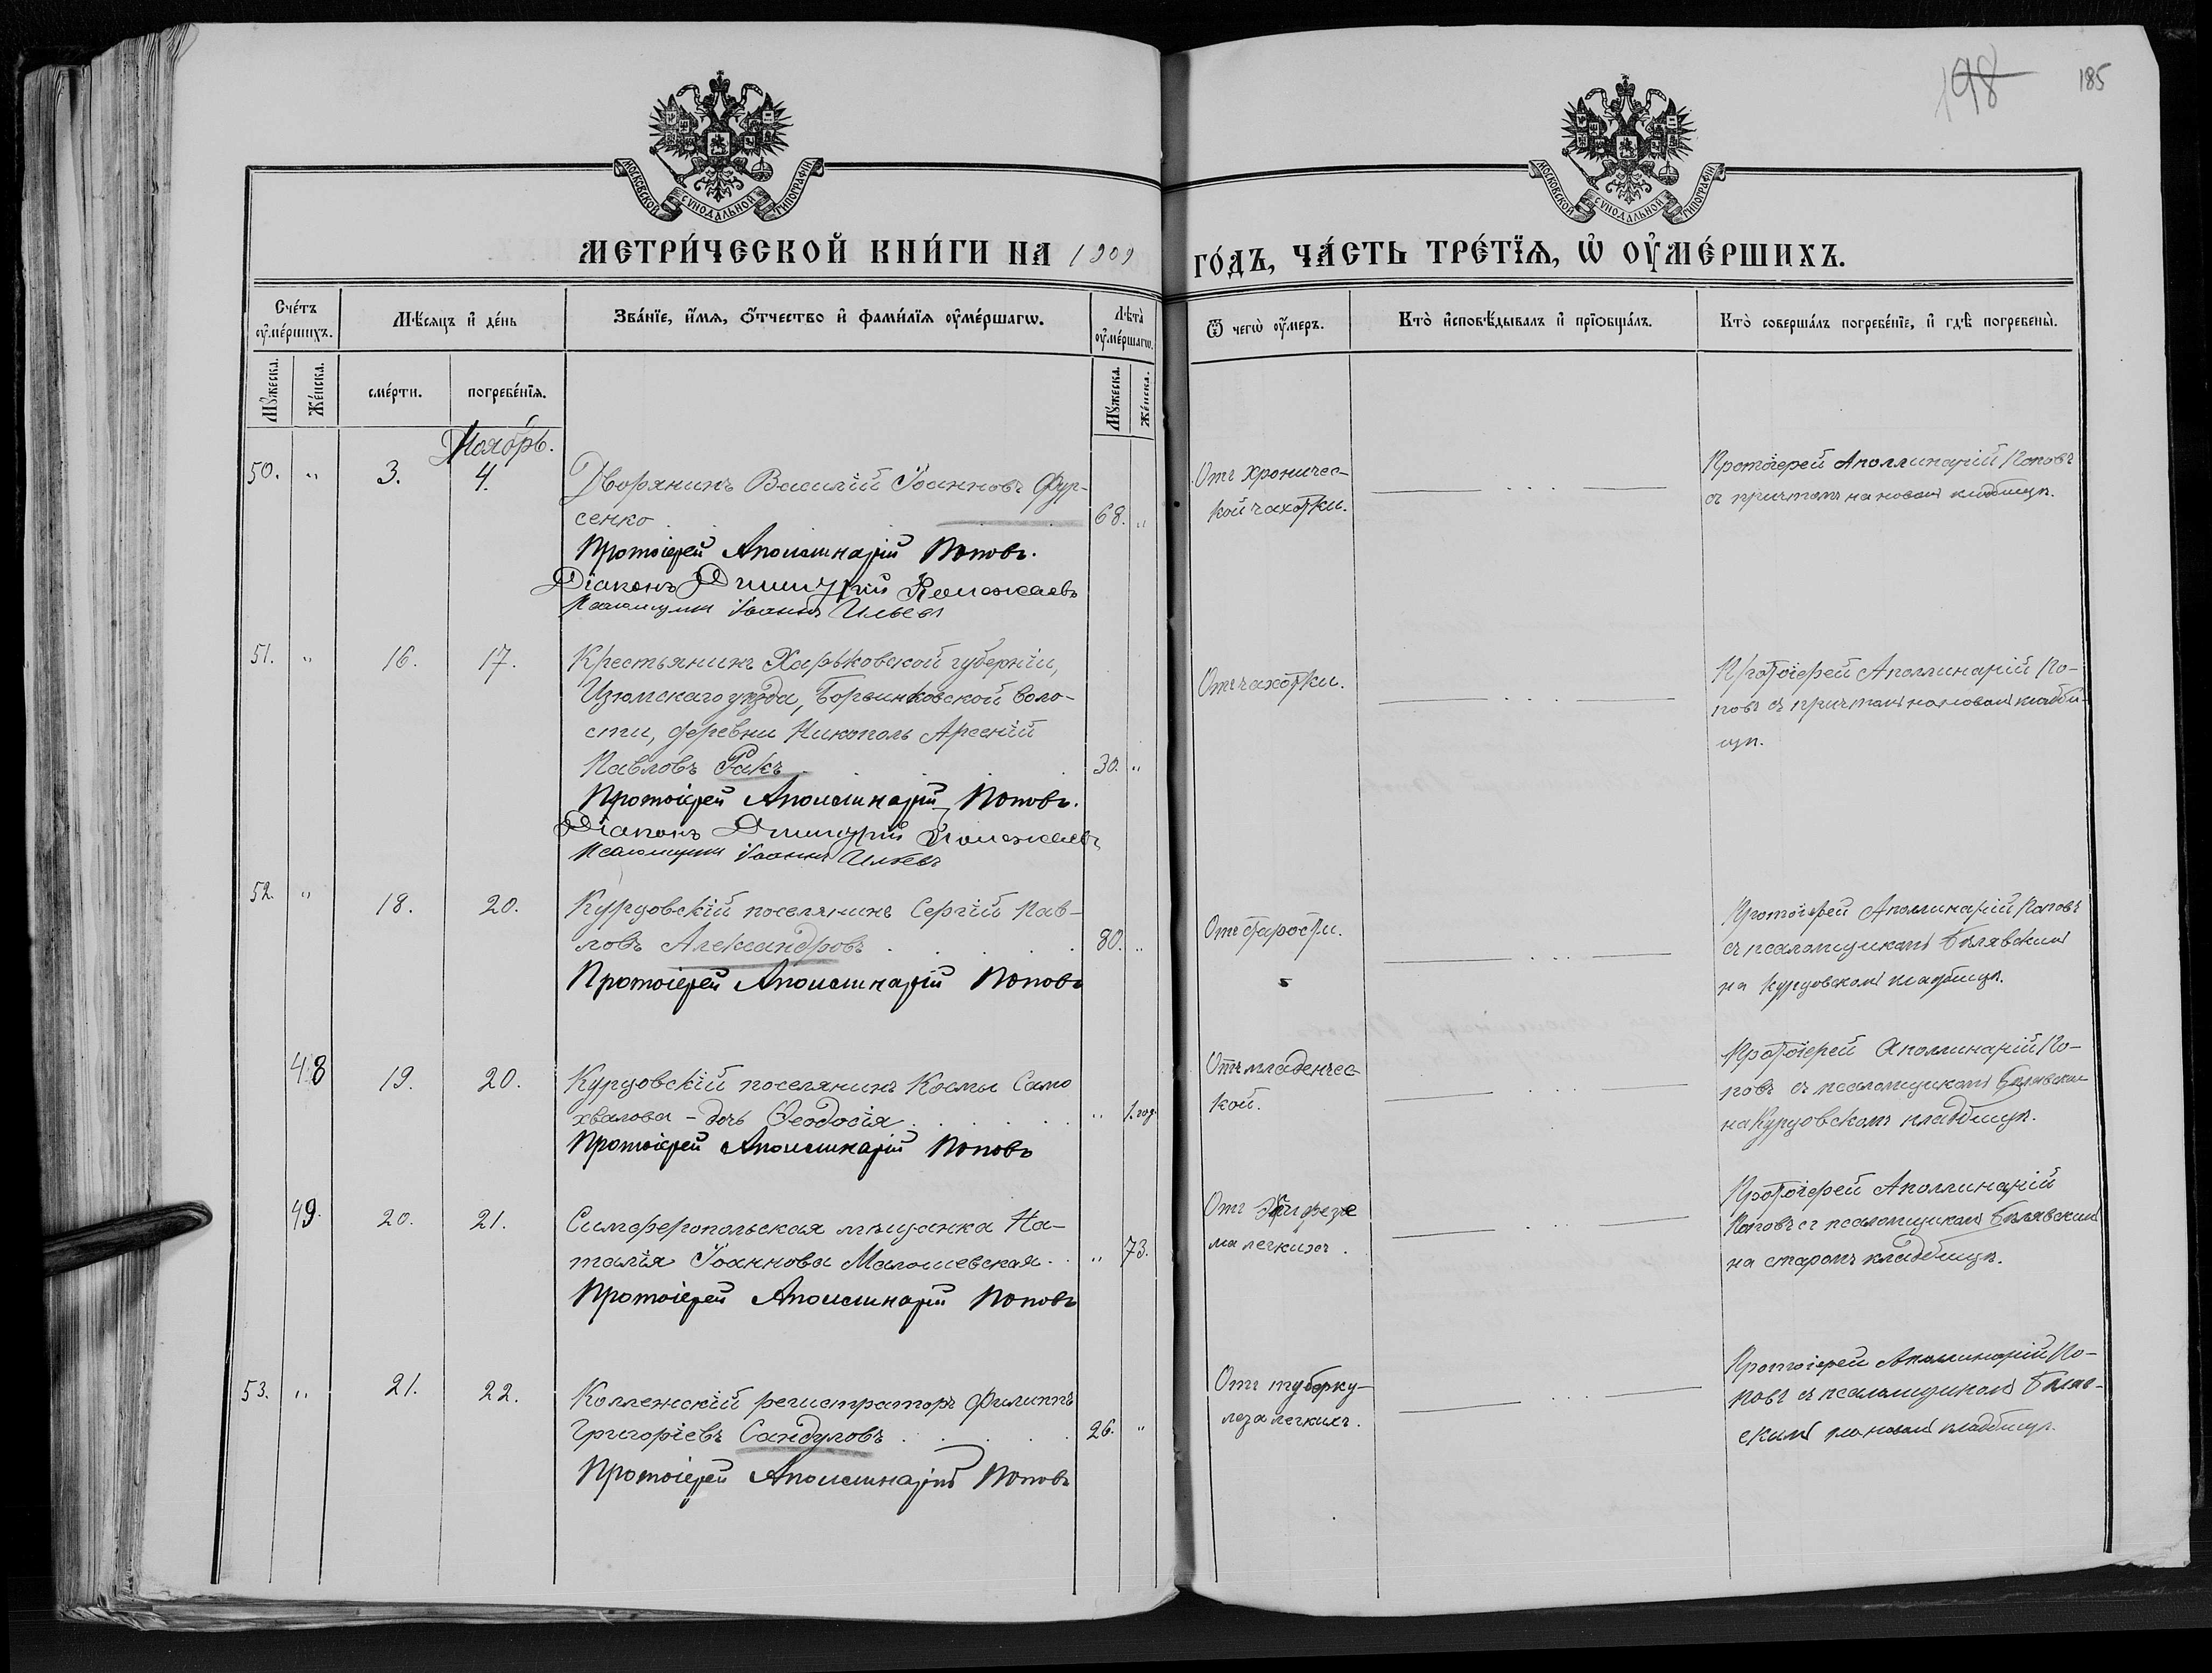 198
185
МОСКОВСКОЙ СѴНОДАЛЬНОЙ ТИПОГРАФІИ
МОСКОВСКОЙ СѴНОДАЛЬНОЙ ТИПОГРАФІИ
МЕТРИ́ЧЕСКОЙ КНИ́ГИ НА 1909 ГО́ДЪ, ЧА́СТЬ ТРЕ́ТЇѦ, Ѡ҆ ОУ҆МЕ́РШИХЪ.
Сче́тъ оу҆ме́ршихъ.
Мѣ́сяцъ и҆ де́нь
Зва́нїе, и҆́мѧ, ѻ҆́тчество и҆ фами́лїѧ оу҆ме́ршагѡ.
Лѣта̀ оу҆ме́ршагѡ.
Ѿ чегѡ̀ оу҆́меръ.
Кто̀ и҆сповѣ́дывалъ и҆ прїѡбща́лъ.
Кто̀ соверша́лъ погребе́нїе, и҆ гдѣ̀ погребены̀.
Мꙋ́жеска.
Же́нска.
сме́рти.
погребе́нїѧ.
Мꙋ́жеска.
Же́нска.
Ноябрь.
50. " 3. 4.
Дворянинъ Василій Іоанновъ Фур-
сенко 68. "
Протоіерей Аполлинарій Поповъ.
Діаконъ Димитрій
Псаломщикъ Іоаннъ Ильевъ
Отъ хроничес-
кой чахотки.
Протоіерей Аполлинарій Поповъ
съ причтомъ на новомъ кладбищѣ.
51. " 16. 17.
Крестьянинъ Харьковской губерніи,
Изюмскаго уѣзда, воло-
сти, деревни Никополь Арсеній
Павловъ Ракъ 30. "
Протоіерей Аполлинарій Поповъ.
Діаконъ Димитрій
Псаломщикъ Іоаннъ Ильевъ
Отъ чахотки.
Протоіерей Аполлинарій По-
повъ съ причтомъ на новомъ кладби-
щѣ.
52. " 18. 20.
Курцовскій поселянинъ Сергій Пав-
ловъ Александровъ 80. "
Протоіерей Аполлинарій Поповъ
Отъ старости.
Протоіерей Аполлинарій Поповъ
съ псаломщикомъ Бѣлявскимъ
на Курцовскомъ кладбищѣ.
48 19. 20.
Курцовскій поселянинъ Космы Само
хвалова - дочь Ѳеодосія " 1. год.
Протоіерей Аполлинарій Поповъ
Отъ младенчес
кой.
Протоіерей Аполлинарій По-
повъ съ псаломщикомъ Бѣлявским
на Курцовскомъ кладбищѣ.
49. 20. 21.
Симферопольская мѣщанка На-
талія Іоаннова Малошевская " 73.
Протоіерей Аполлинарій Поповъ
Отъ
ма легкихъ.
Протоіерей Аполлинарій
Поповъ съ псаломщикомъ Бѣлявскимъ
на старомъ кладбищѣ.
53. " 21. 22.
Коллежскій регистраторъ Филиппъ
Григоріевъ Сандуловъ 26. "
Протоіерей Аполлинарій Поповъ
Отъ туберку-
леза легкихъ.
Протоіерей Аполлинарій По-
повъ съ псаломщикомъ Бѣляв-
скимъ на новомъ кладбищѣ.